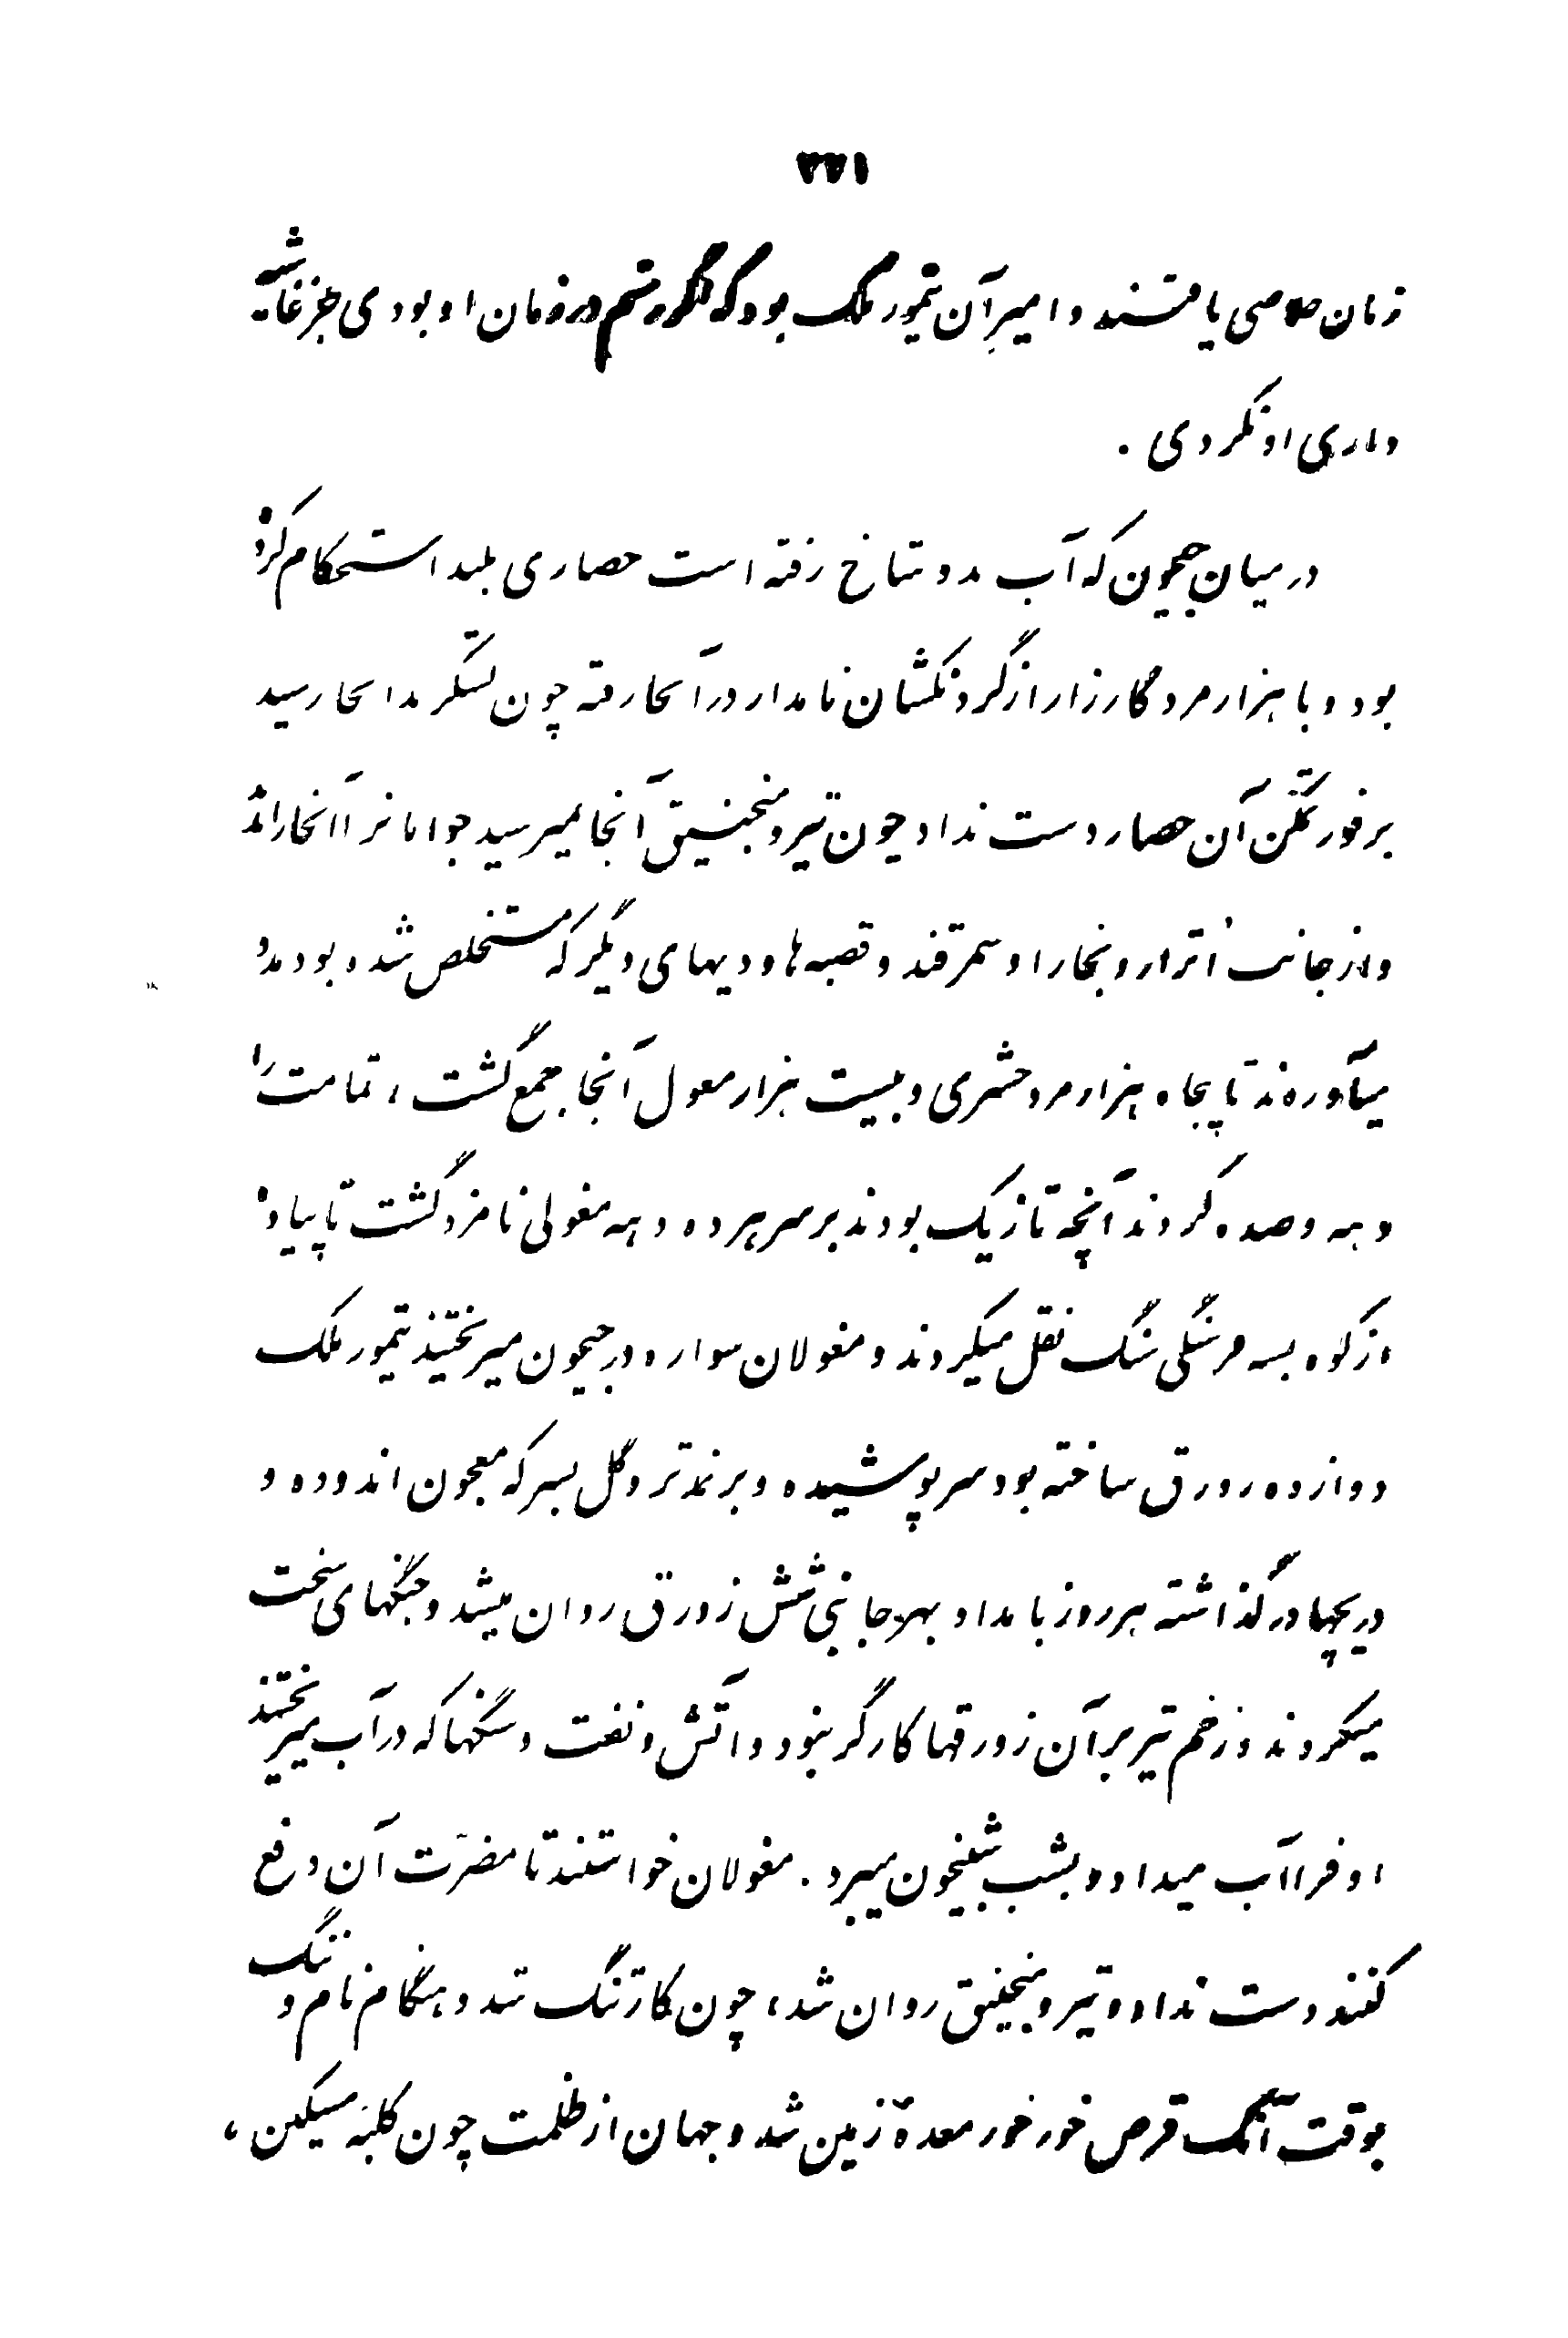 ۲۲۱
زمان خلاصی یافتند و امیر آن تیمور ملک بود که گر رستم در زمان او بودی جز غاشیه
داری او نکردی .
در میان جیحون که آب بدو شاخ رفته است حصاری بلند استحکام کرده
بود و با هزار مرد کارزار از گردنکشان نامدار در آنجا رفته چون لشکر بدانجا رسید
بر فور تمکن آن حصار دست نداد چون تیر و منجنیق آنجا نمیرسید جوانانرا آنجا راند
و از جانب اترار و بخارا و سمرقند و قصبه ها و دیهای دیگر که مستخلص شده بود مدد
میآوردند تا پنجاه هزار مرد حشری و بیست هزار مغول آنجا جمع گشت ، تمامت را
دهه و صده کردند آنچه تازیک بودند بر سر هر ده دهه مغولی نامزد گشت تا پیاده
از کوه بسه فرسنگی سنگ نقل میکردند و مغولان سواره در جیحون میریختند تیمور ملک
دوازده زورق ساخته بود سر پوشیده و بر نمد تر و گل بسرکه معجون اندوده و
دریچها درگذاشته هر روز بامداد بهر جانبی شش زورق روان میشد و جنگهای سخت
میکردند و زخم تیر بر آن زورقها کارگر نبود و آتش و نفت و سنگها که در آب میریختند
او فرا آب میداد و بشب شبیخون میبرد . مغولان خواستند تا مضرّت آن دفع
کنند دست نداد و تیر و منجنیق روان شد ، چون کار تنگ شد و هنگام نام و ننگ
بوقت آنک قرص خور خور معدهٔ زمین شد و جهان از ظلمت چون کلبهٔ مسکین ،